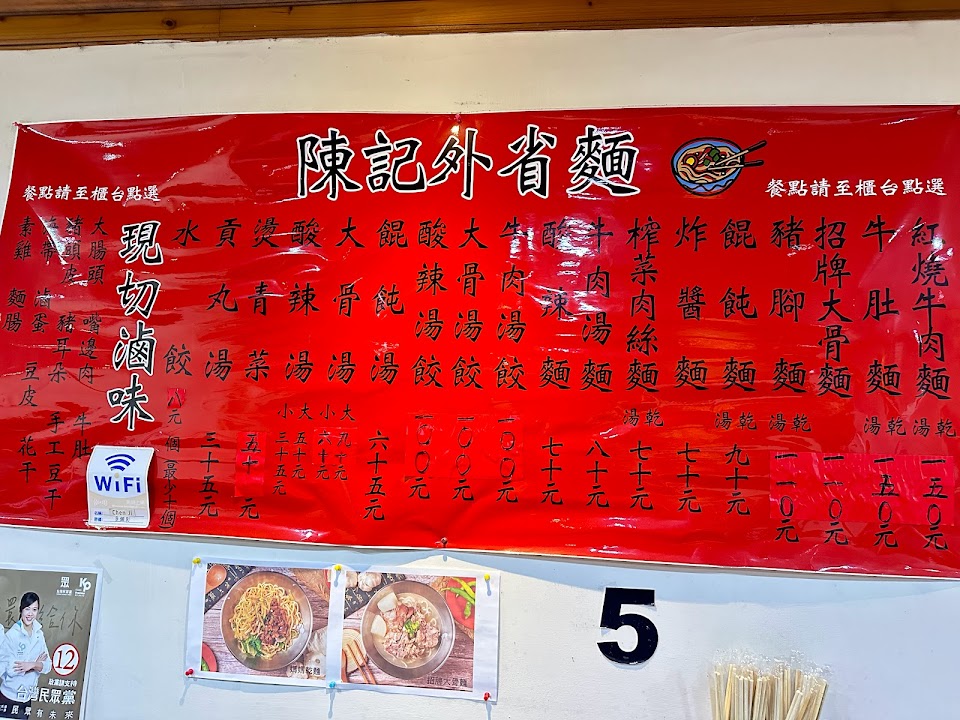 陳記外省麵
餐點請至櫃台點選
餐點請至櫃台點選
紅燒牛肉麵 湯乾 一五〇元
牛肚麵 湯乾 一五〇元
招牌大骨麵 一一〇元
豬腳麵 湯乾 一一〇元
餛飩麵 湯乾 九十元
炸醬麵 七十元
榨菜肉絲麵 湯乾 七十元
牛肉湯麵 八十元
酸辣麵 七十元
牛肉湯餃 一〇〇元
大骨湯餃 一〇〇元
酸辣湯餃 一〇〇元
餛飩湯 六十五元
大骨湯 大 九十元 小 六十元
酸辣湯 大 五十元 小 三十五元
燙青菜 五十元
貢丸湯 三十五元
水餃 八元 個 最少十個
現切滷味
大腸頭 嘴邊肉 牛肚
豬頭皮 豬耳朵 手工豆干
海帶 滷蛋 豆皮 花干
素雞 麵腸
WiFi
Chen
眾
KP
12
政黨票支持
台灣民眾黨
民眾有未來
乾麵
招牌大骨麵
5